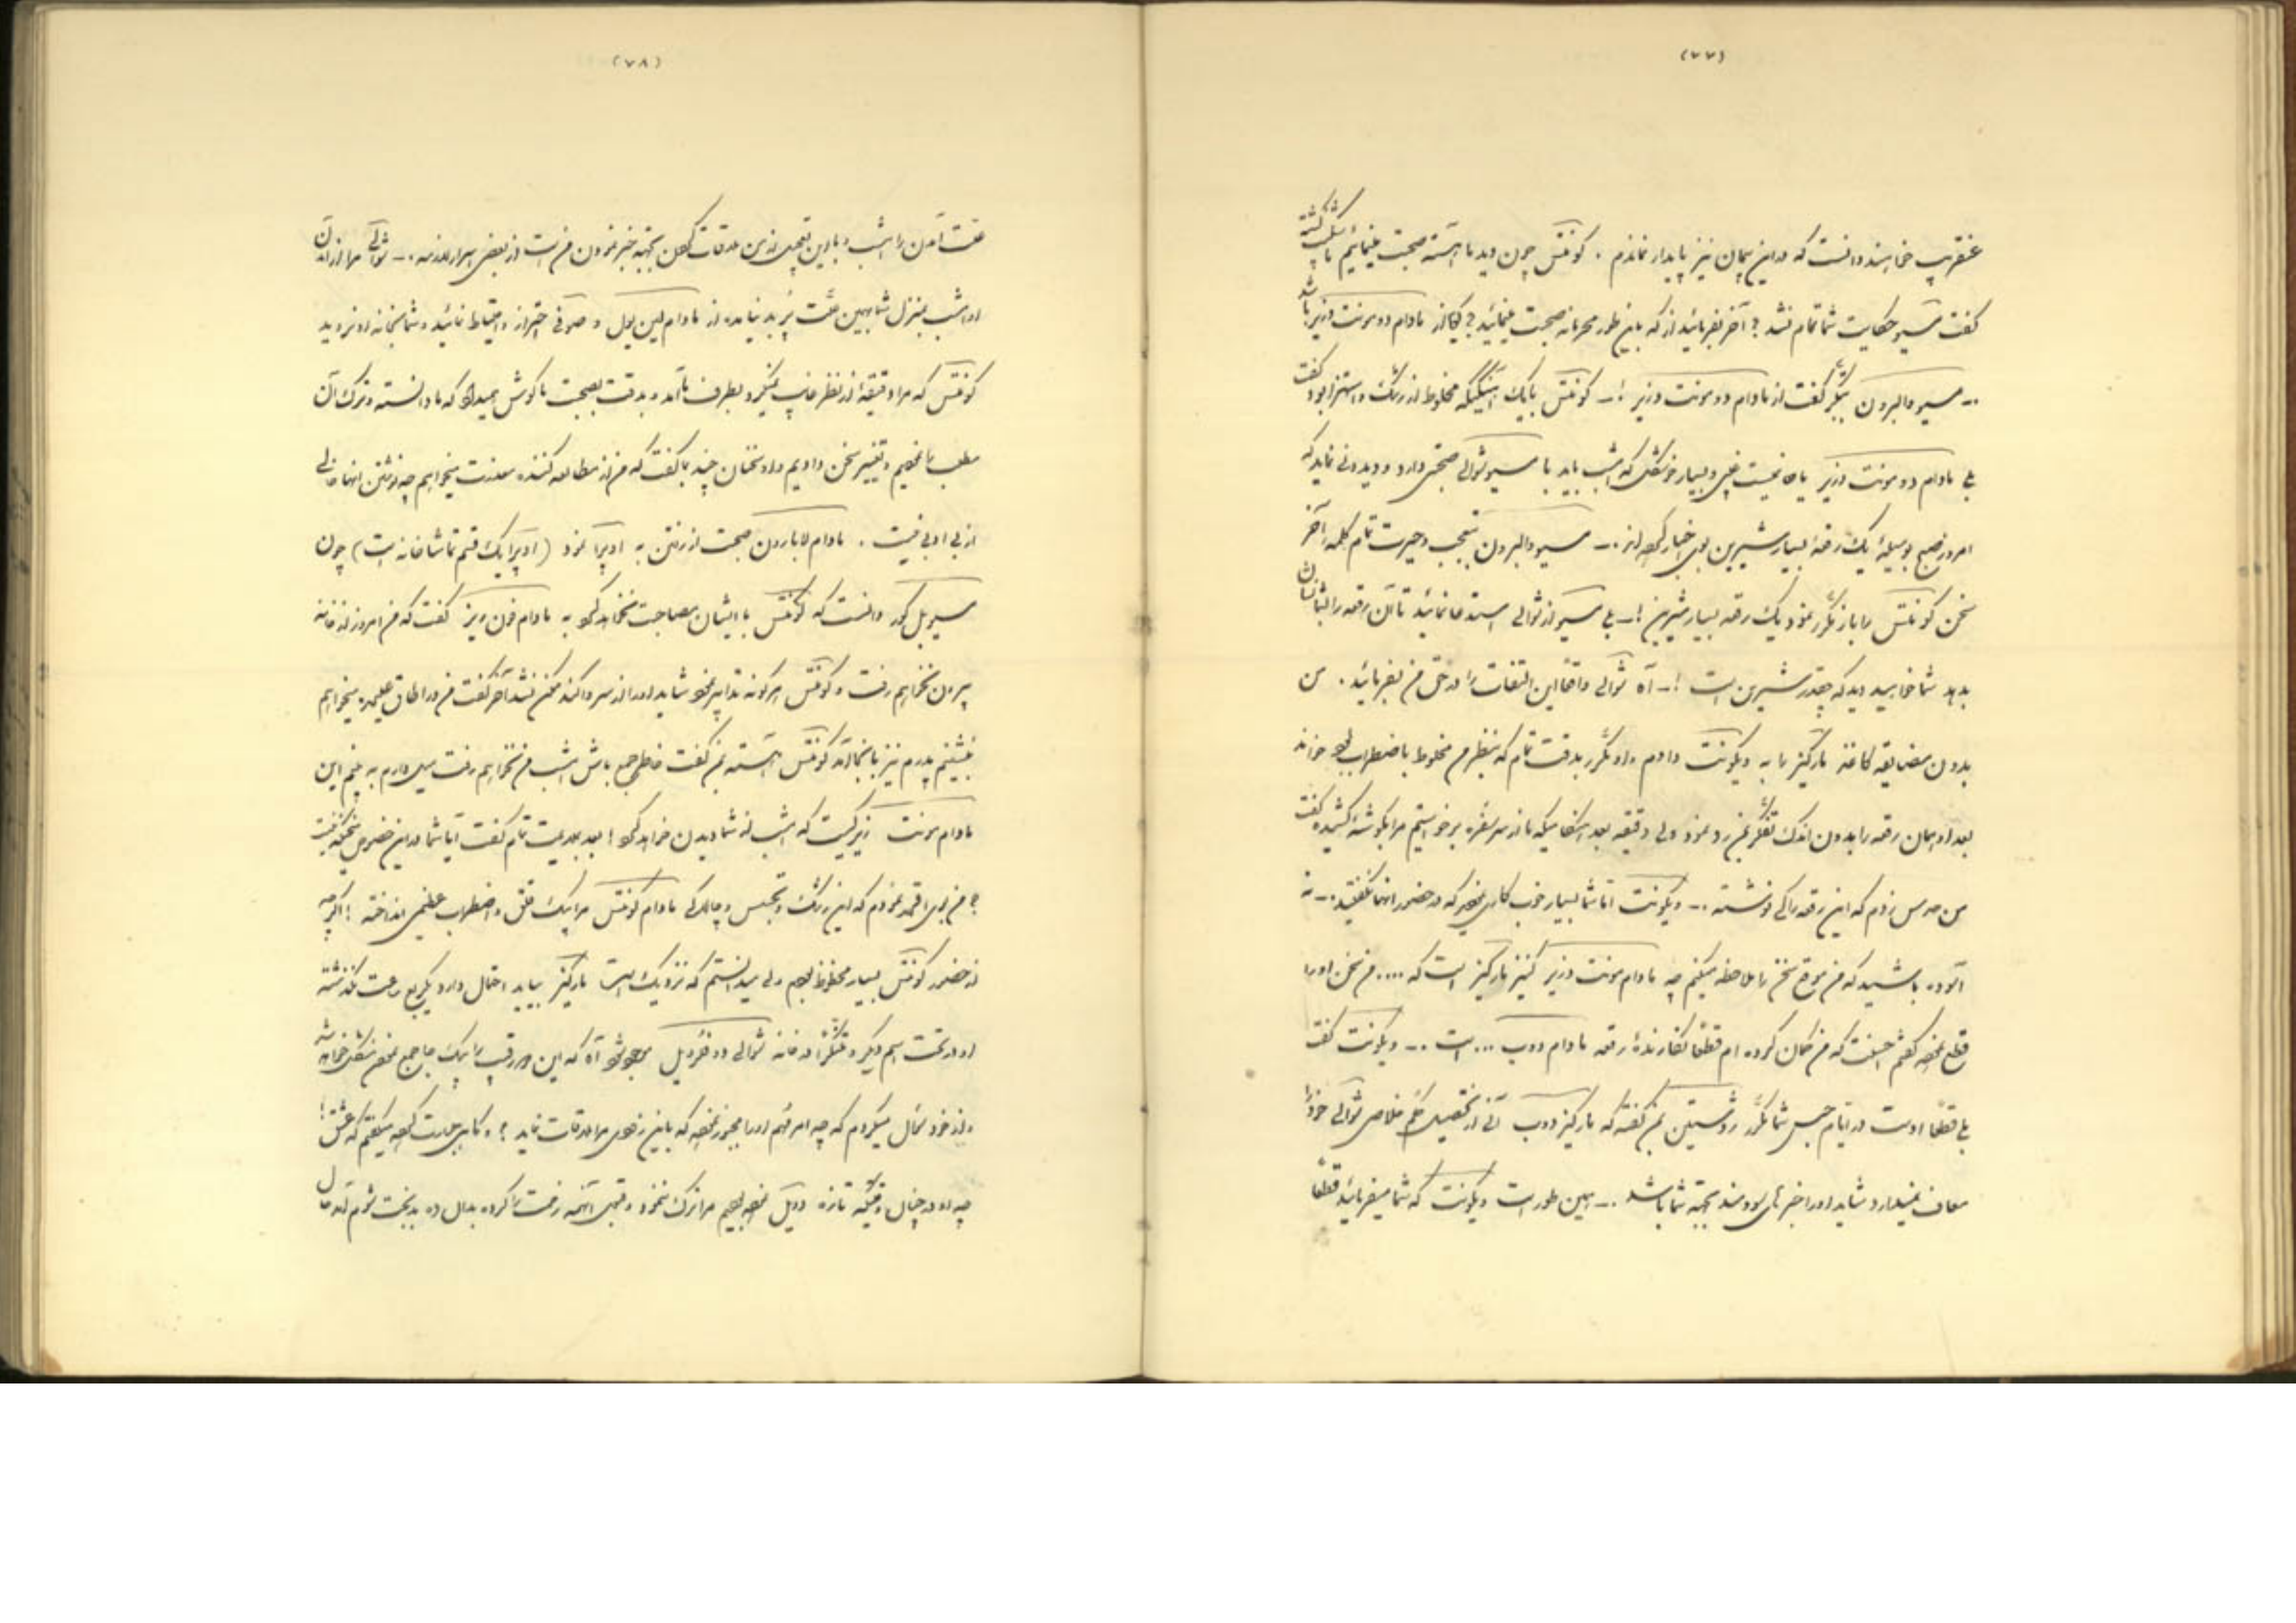 (۷۷)
عنقریب خواهند دانست که در این پیمان نیز پایدار نماندم . کونتس چون دید ما آهسته صحبت مینمائیم
گفت مسیو حکایت شما تمام نشد ? آخر بفرمائید از که باین طور محرمانه صحبت مینمائید ? گویا از مادام دومونت وزیر باشد
.— مسیو والبرون گفت از مادام دومونت وزیر !— کونتس با یک آهنگیکه مخلوط از رشک و استهزا بود گفت
بلی مادام دومونت وزیر یا خانمیست غنی و بسیار خوشگل که امشب باید با مسیو شوالی صحبتی دارد و دیدنی نماید که
امروز صبح بوسیلهٔ یک رقعهٔ بسیار شیرین اخبار کرده‌اند .— مسیو والبرون بتعجب و حیرت تمام کلمه آخر
سخن کونتس را باز مکرر نمود یک رقعه بسیار شیرین !— بلی مسیو از شوالی استدعا نمائید تا آن رقعه را بشما نشان
بدهد شما خواهید دید که چقدر شیرین است !— آه شوالی واقعاً این التفات را در حق من بفرمائید . من
بدون مضایقه کاغذ مارکیز را به ویکونت دادم و او مکرر بدقت تمام که بنظرم مخلوط باضطراب بود خواند
بعد او همان رقعه را بدون اندک تفکر بمن رد نمود ولی دقیقه بعد هنگامیکه ما از سر سفره برخواستیم مرا بگوشهٔ کشیده گفت
من حدس زدم که این رقعه را کی نوشته .— ویکونت اما شما بسیار خوب کاری نمودید که در حضور آنها نگفتید .— نه
آسوده باشید که من موقع سخن را ملاحظه میکنم چه مادام مونت وزیر کنیز مارکیز است که .... من سخن او را
قطع نموده گفتم احسنت که من گمان کرده ام قطعاً نگارندهٔ رقعه مادام دوب ... است .— ویکونت گفت
بلی قطعاً اوست در ایام حبس شما مکرر بمن گفته که مارکیز دوب آنی از تحصیل حکم خلاصی شوالی خود را
معاف نمیدارد شاید او را خبرهای سودمند بجهة شما باشد .— همین طور است ویکونت که شما میفرمائید قطعاً
(۷۸)
علت آمدن امشب و بجهة خبر نمودن من است از بعضی اسرار لازمه .— شوالی
او امشب بمنزل شما بهمین علت پر بد نیامده از مادام لین یول و صوفی احتراز و احتیاط نمائید و شما بخانه او نروید
کونتس که مرا دقیقهٔ از نظر غایب نمیکرد بطرف ما آمد و بدقت بصحبت ما گوش میداد که ما دانسته و ترک آن
مطلب را نمودیم و تغییر سخن دادیم و او سخنان چند بما گفت که من از مطالعه کننده معذرت میخواهم چه نوشتن آنها خالی
از بی ادبی نیست . مادام لابارون صحبت از رفتن به اوپرا نمود (اوپرا یک قسم تماشاخانه است) چون
مسیو بل کور دانست که کونتس با ایشان مصاحبت نخواهد کرد به مادام فون ویز گفت که من امروز از خانه
بیرون نخواهم رفت و کونتس هر گونه تدابیر نمود شاید او را از سر وا کند ممکن نشد آخر گفت من در اطاق علیحده میخواهم
بنشینم پدرم نیز بآنجا آمد کونتس آهسته بمن گفت خاطر جمع باش امشب من نخواهم رفت میل دارم به بینم این
مادام مونت وزیر کیست که امشب از شما دیدن خواهد کرد ! بعد بجدیت تمام گفت آیا شما در این خصوص
? من فهم نمودم که این رشک و تجسس و چالاکی مادام کونتس مرا بیک قلق و اضطراب عظیمی انداخته ! اگرچه
از حضور کونتس بسیار محظوظ بودم ولی میدانستم که نزدیک است مارکیز بیاید احتمال دارد یکربع ساعت نگذشته
او در تحت اسم دیگر در خانه شوالی دو فوبلاس موجود شود آه که این دو رقیب را بیک جا جمع نمودن مشکل خواهد شد
و از خود سئوال میکردم که چه امر مهم او را مجبور نموده که باین زودی مرا ملاقات نماید ? و گاهی جسارت کرده میگفتم که عشق !
چه او در چنان وقتیکه تازه نموده بودیم مرا ترک ننمود و قتی آنهمه زحمت را کرده بدان ده بدبخت شوم آمد